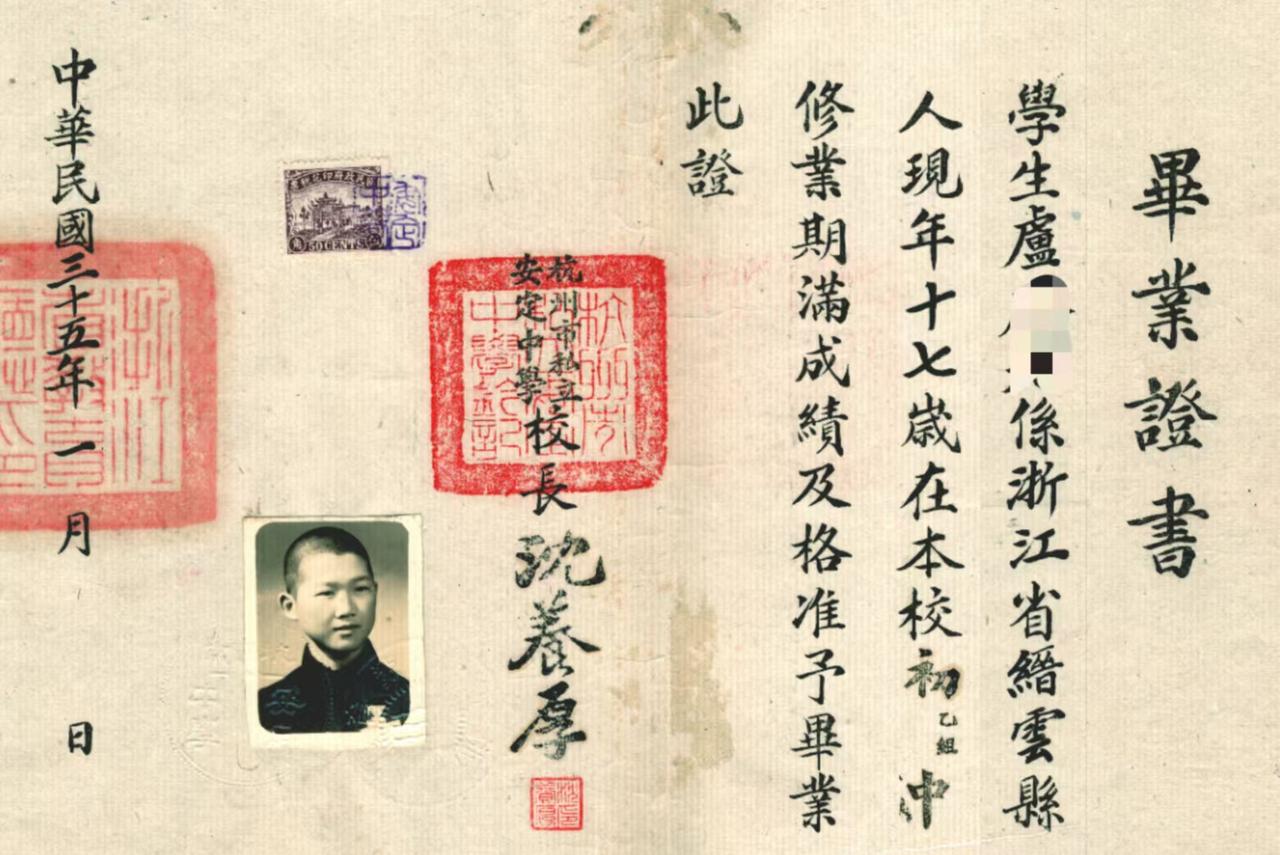 畢業證書
學生盧
係浙江省縉雲縣
人現年十七歲在本校初乙組中
修業期滿成績及格准予畢業
此證
杭州市私立
安定中學
校長沈養厚
50 CENTS
中華民國三十五年一月 日